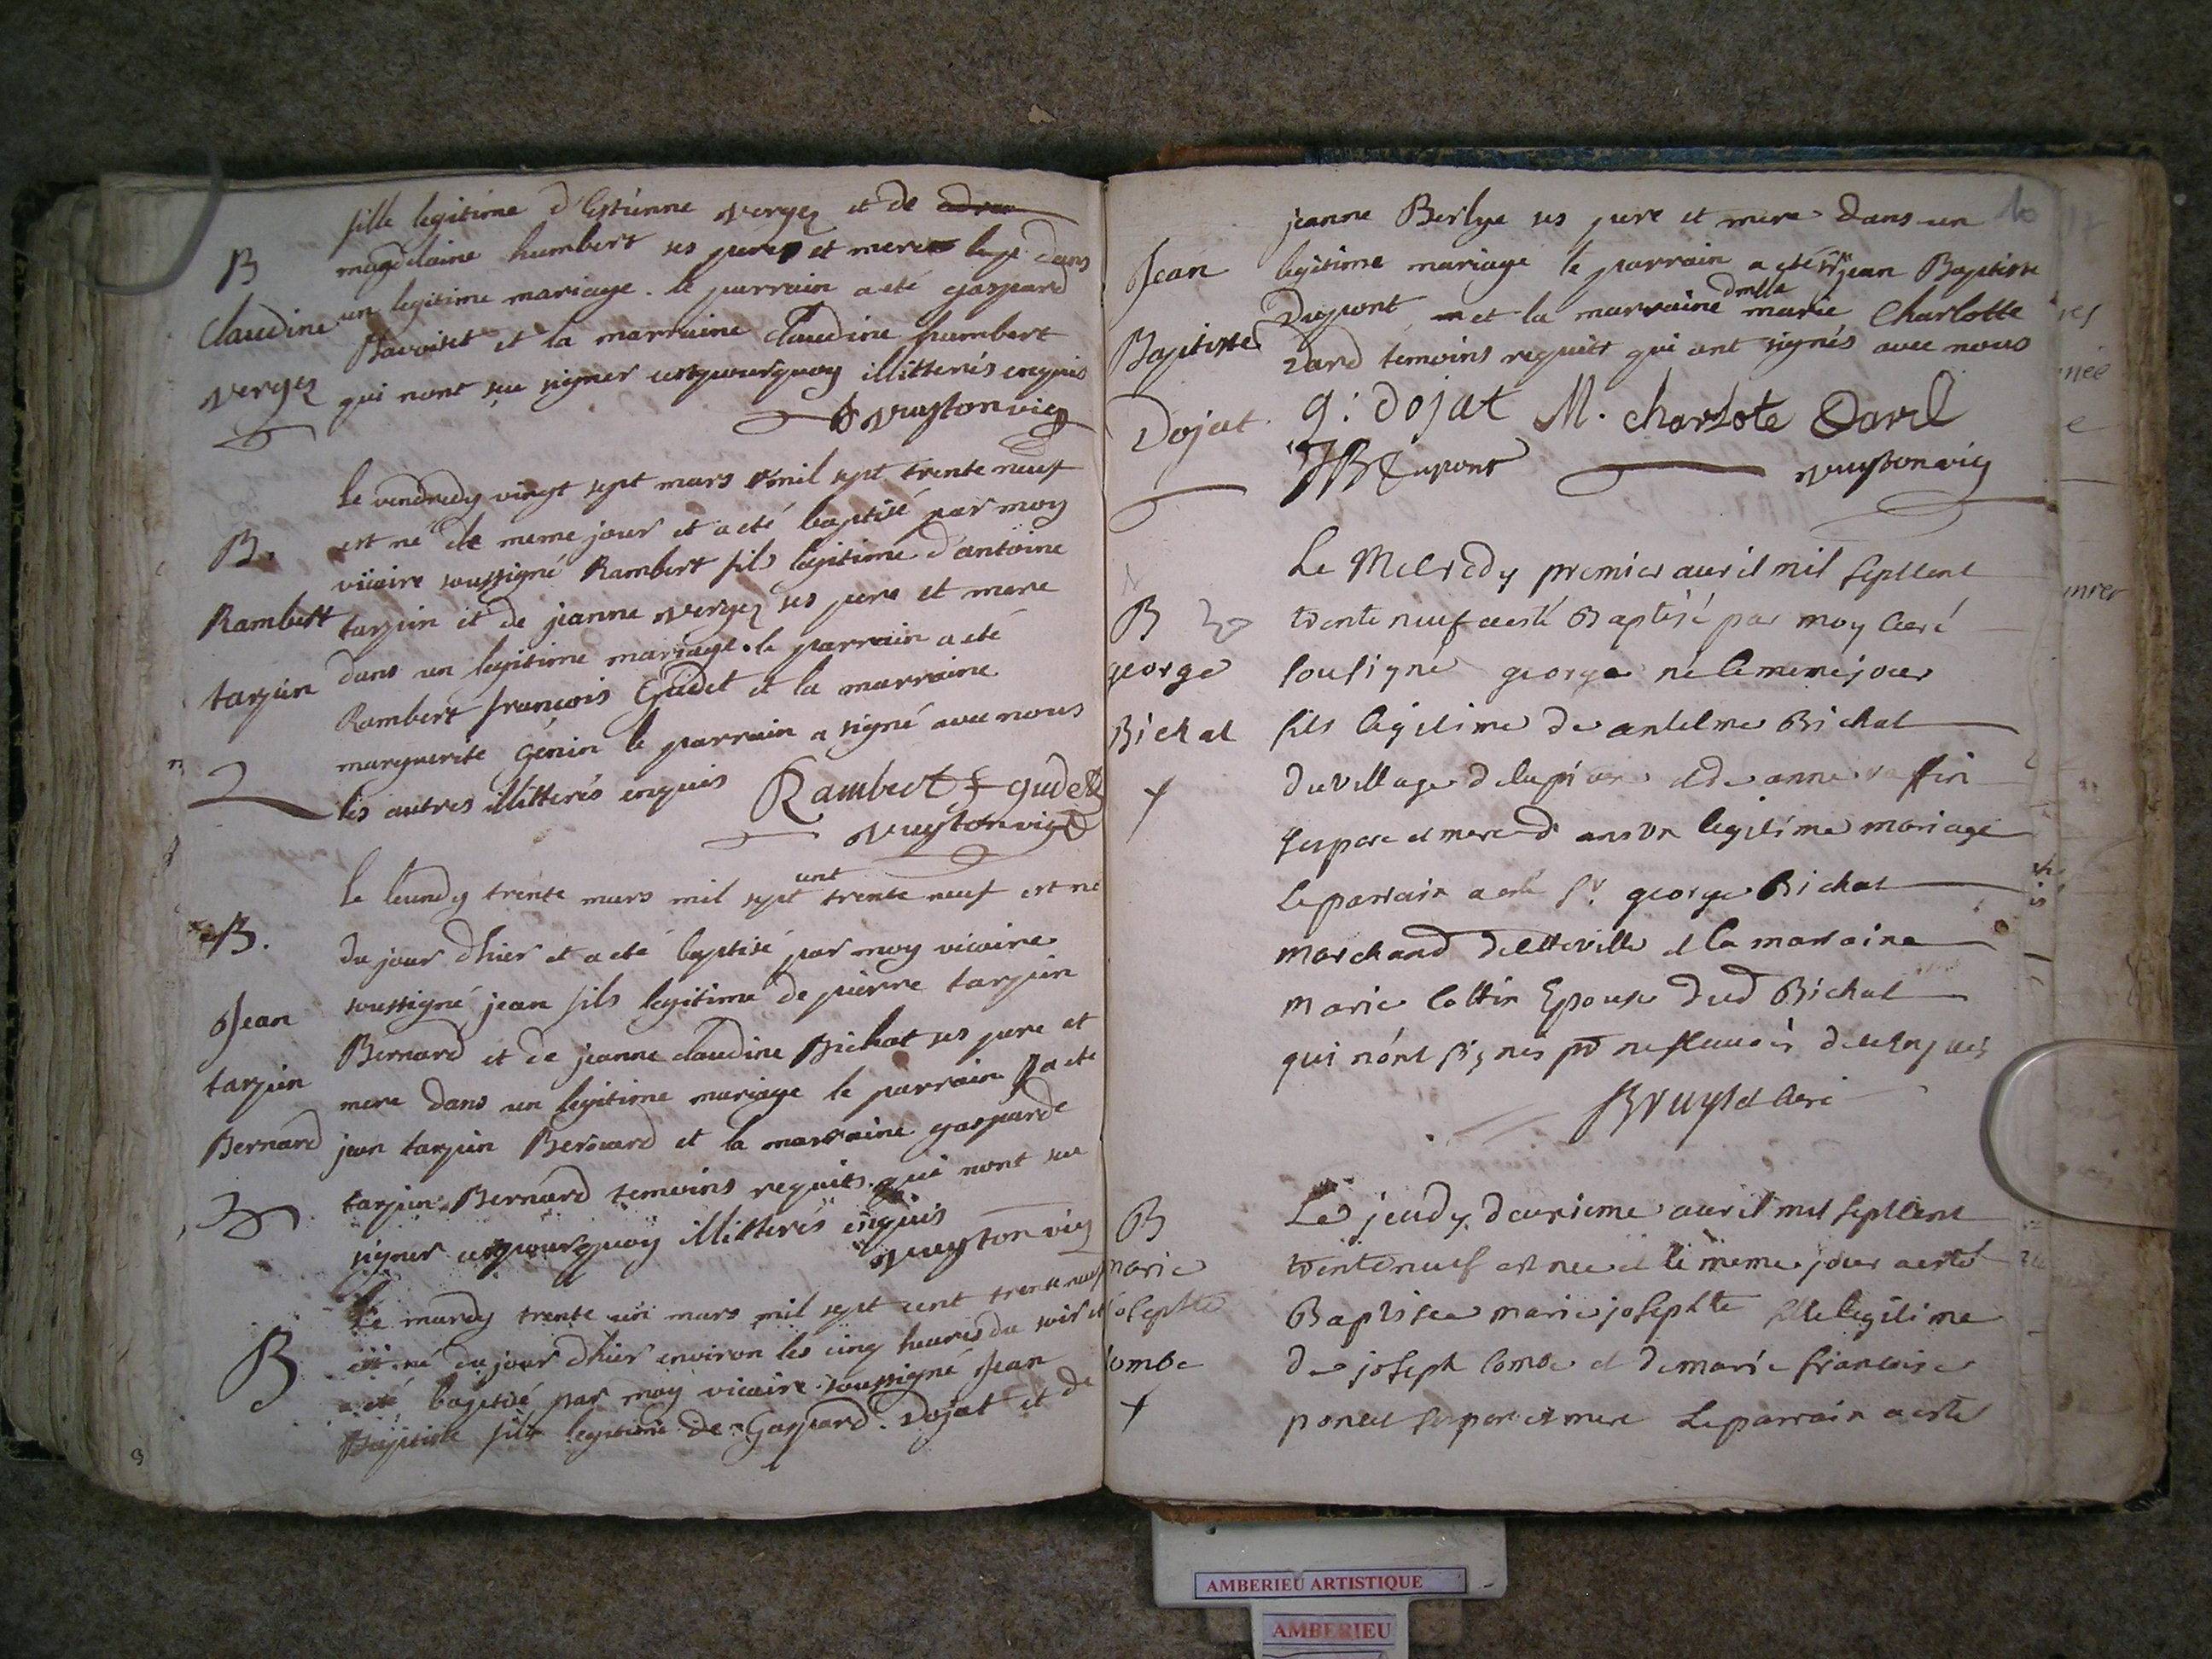 fille legitime d'Estienne vergez et de
B
magdelaine humbert ses pere et mere dans
un legitime mariage. le parrain a eté gaspard
Claudine
et la marraine Claudine humbert
vergez
qui nont su signer illitterés enquis
vuyton vic
le vendredy vingt sept mars mil sept trente neuf
B.
est né le meme jour et a eté baptisé par moy
vicaire soussigné Rambert fils legitime d'antoine
Rambert
tarpin et de jeanne vergez ses pere et mere
dans un legitime mariage. le parrain a eté
tarpin
Rambert françois Gudet et la marraine
marguerite génin le parrain a signé avec nous
les autres illitterés enquis
Rambert f gudet
vuyton vic
le leundy trente mars mil sept cent trente neuf est né
B.
du jour dhier et a eté baptisé par moy vicaire
soussigné jean fils legitime de pierre tarpin
Jean
Bernard et de jeanne claudine Bichat ses pere et
tarpin
mere dans un legitime mariage le parrain a eté
Bernard
jean tarpin Bernard et la marraine gasparde
tarpin Bernard temoins requits qui nont su
signer illitterés enquis
vuyton vic
Le mardy trente un mars mil sept cent trente neuf
B
est né du jour dhier environ les cinq heures du soir et
a eté baptisé par moy vicaire soussigné Jean
Baptiste fils legitime de Gaspard Dojat et de
10
jeanne Berlye ses pere et mere dans un
Jean
legitime mariage le parrain a eté sr jean Baptiste
Dupont et la marraine dmlle marie Charlotte
Baptiste
temoins requits qui ont signés avec nous
Dojat
g: Dojat M. charlote
JB Dupont
vuyton vic
Le Mecredy premier avril mil septcent
B
trente neuf aesté Baptisé par moy Curé
george
sousigné george né le meme jour
Bichat
fils legitime de antelme Bichat
du village et de anne
ses pere et mere dans un legitime mariage
Le parrain a esté sr. george Bichat
marchand de cette ville et la marraine
Marie Cottin Epouse dud Bichat
qui nónt signés pr ne scavoir de ce enquis
Bruyset Curé
B
Le jeudy deuxieme avril mil septcent
marie
trente neuf est née et le meme jour a esté
josephte
Baptisee marie josephte fille legitime
Combe
de joseph Combe et de marie francoise
poncet ses pere et mere Le parrain a esté
AMBERIEU ARTISTIQUE
AMBERIEU